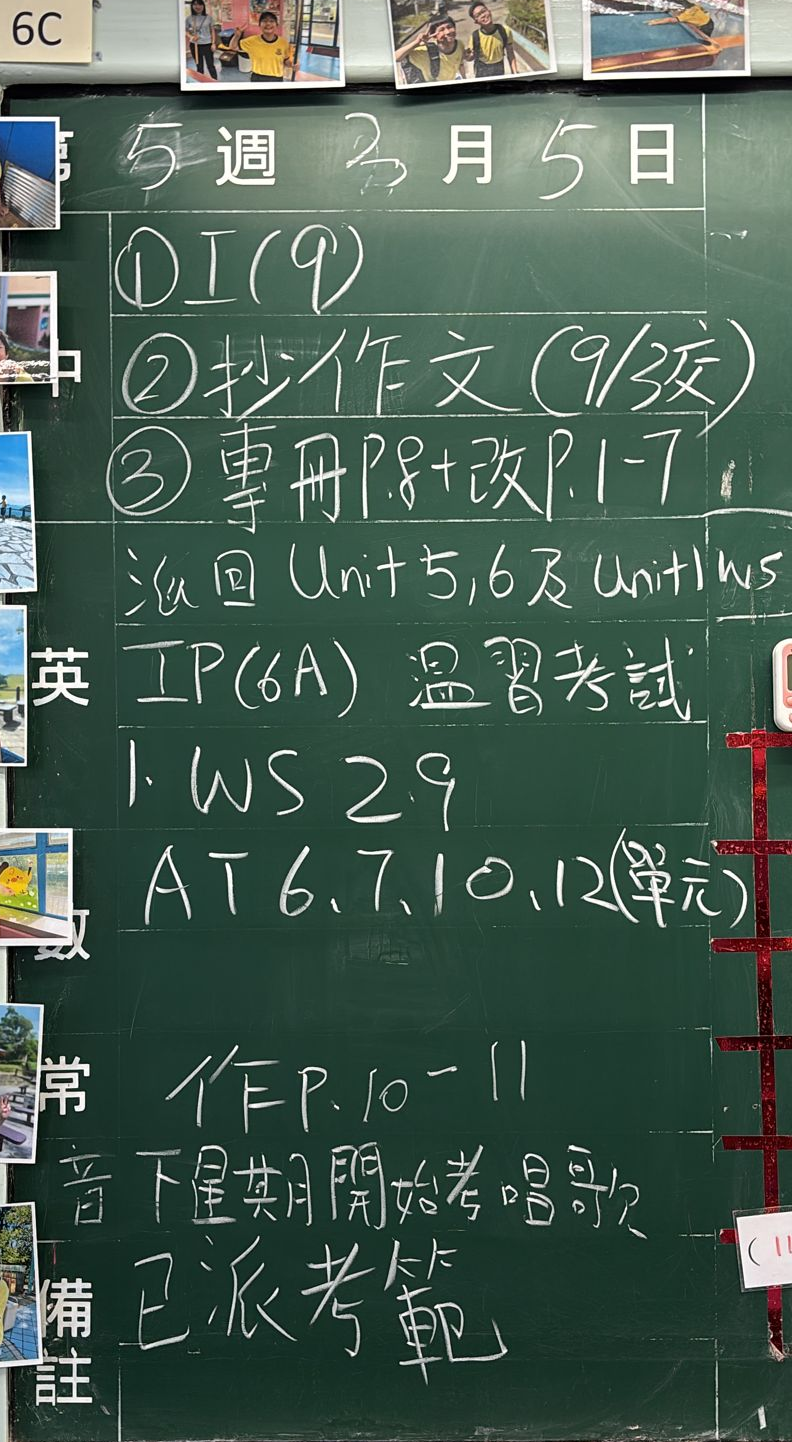 6C
第 5 週 3 月 5 日
①工(9)
中 ②抄作文(9/3交)
③專冊P.8+改P.1-7
派回 Unit 5,6 及 Unit 1 WS
英 IP(6A) 溫習考試
1. WS 2.9
AT 6、7、10、12(單元)
數
常 作P.10-11
音 下星期開始考唱歌
備註 已派考範